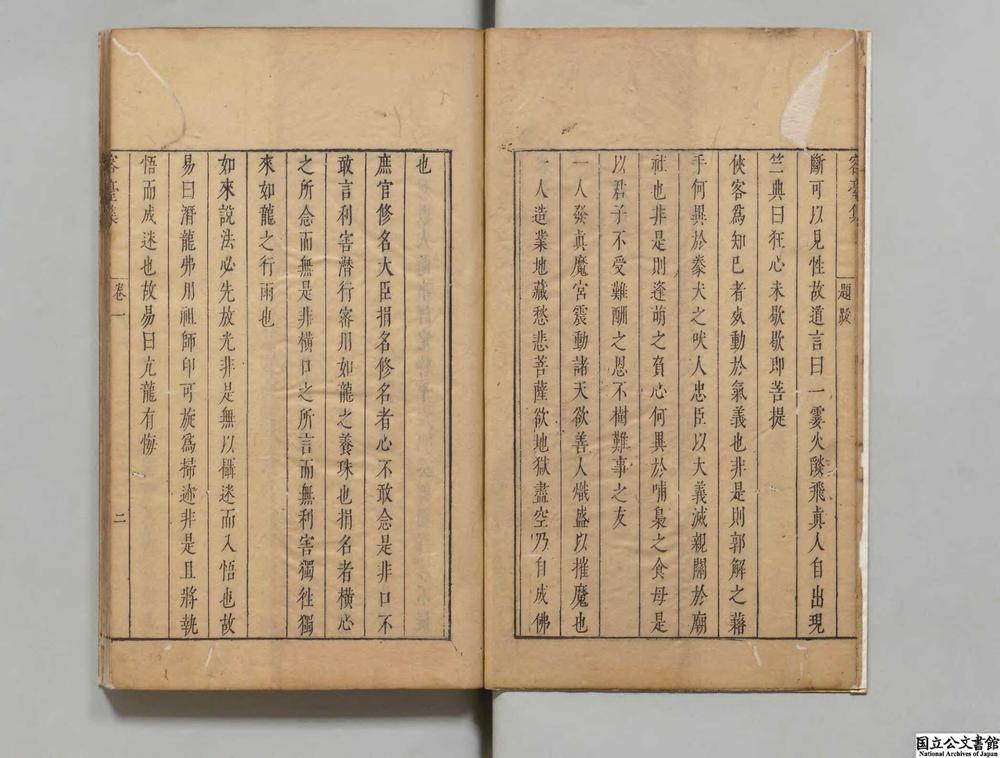 容臺集
題跋
斷可以見性故道言曰一霎火燄飛真人自出現
竺典曰狂心未歇歇即菩提
俠客為知己者死動於氣義也非是則郭解之藉
手何異於豢犬之吠人忠臣以大義滅親關於廟
社也非是則逢萌之負心何異於哺梟之食母是
以君子不受難酬之恩不樹難事之友
一人發真魔宮震動諸天欲善人熾盛以摧魔也
一人造業地藏愁悲菩薩欲地獄盡空乃自成佛
也
庶官修名大臣捐名修名者心不敢念是非口不
敢言利害潛行密用如龍之養珠也捐名者橫心
之所念而無是非橫口之所言而無利害獨徃獨
來如龍之行雨也
如來說法必先放光非是無以攝迷而入悟也故
易曰潛龍弗用祖師印可旋為掃迹非是且將執
悟而成迷也故易曰亢龍有悔
容臺集
卷一
二
国立公文書館
National Archives of Japan